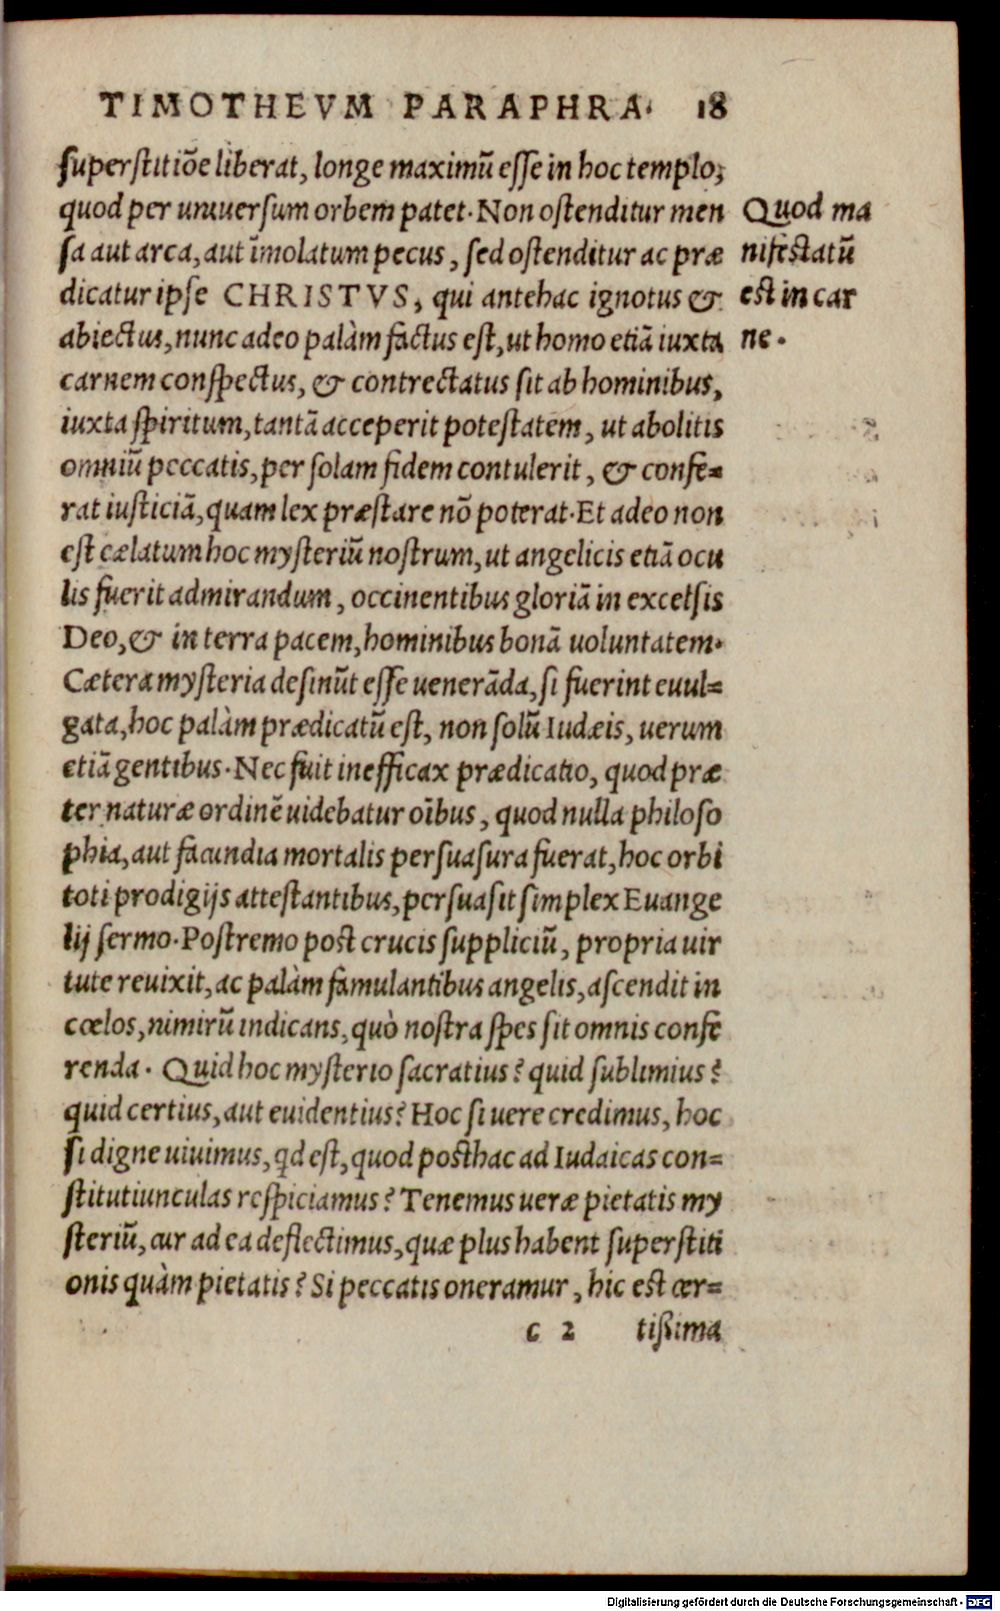 TIMOTHEVM PARAPHRA. 18
superstitiōe liberat, longe maximū esse in hoc templo,
quod per uniuersum orbem patet. Non ostenditur men
sa aut arca, aut īmolatum pecus, sed ostenditur ac præ
dicatur ipse CHRISTVS, qui antehac ignotus &
abiectus, nunc adeo palàm factus est, ut homo etiā iuxta
carnem conspectus, & contrectatus sit ab hominibus,
iuxta spiritum, tantā acceperit potestatem, ut abolitis
omniū peccatis, per solam fidem contulerit, & confe=
rat iusticiā, quam lex præstare nō poterat. Et adeo non
est cælatum hoc mysteriū nostrum, ut angelicis etiā ocu
lis fuerit admirandum, occinentibus gloriā in excelsis
Deo, & in terra pacem, hominibus bonā uoluntatem.
Cætera mysteria desinūt esse uenerāda, si fuerint euul=
gata, hoc palàm prædicatū est, non solū Iudæis, uerum
etiā gentibus. Nec fuit inefficax prædicatio, quod præ
ter naturæ ordinē uidebatur oībus, quod nulla philoso
phia, aut facundia mortalis persuasura fuerat, hoc orbi
toti prodigijs attestantibus, persuasit simplex Euange
lij sermo. Postremo post crucis suppliciū, propria uir
tute reuixit, ac palàm famulantibus angelis, ascendit in
cœlos, nimirū indicans, quò nostra spes sit omnis confe
renda. Quid hoc mysterio sacratius? quid sublimius?
quid certius, aut euidentius? Hoc si uere credimus, hoc
si digne uiuimus, qd est, quod posthac ad Iudaicas con=
stitutiunculas respiciamus? Tenemus ueræ pietatis my
steriū, cur ad ea deflectimus, quæ plus habent superstiti
onis quàm pietatis? Si peccatis oneramur, hic est cer=
c 2 tissima
Quod ma
nifestatū
est in car
ne.
Digitalisierung gefördert durch die Deutsche Forschungsgemeinschaft - DFG